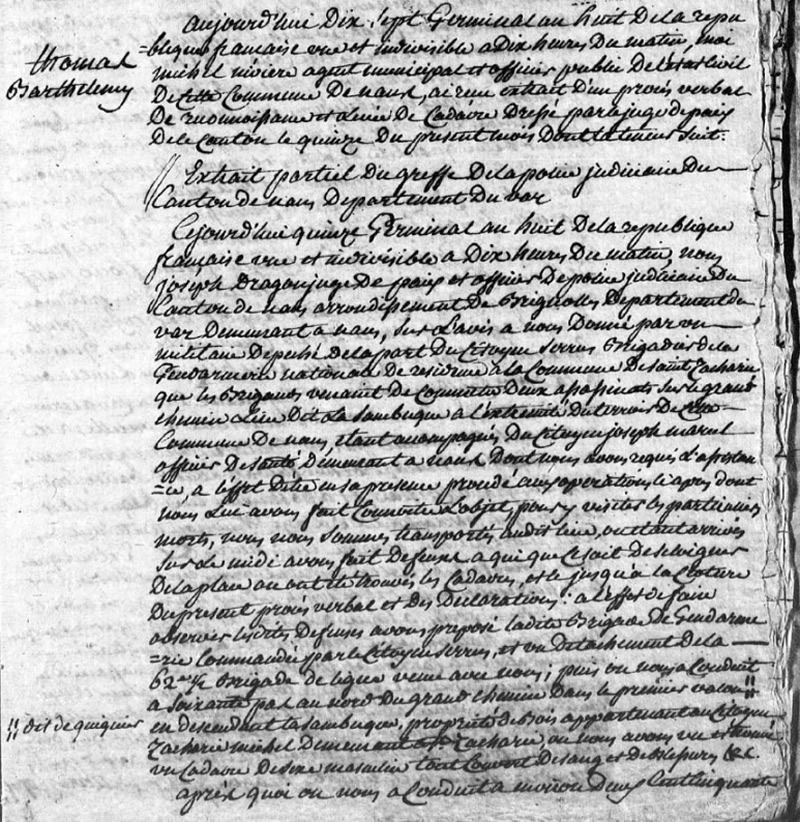 thomas
Barthelemy
aujourd'huy Dix sept Germinal an huit De la repu
=blique francaise une et indivisible a Dix heures Du matin, moi
michel riviere agent municipal et officier public De l'etat civil
De cette Commune De nans, ai reçu extrait d'un procès verbal
De reconnoissance et levée de Cadavre Dressé par le juge de paix
De ce Canton le quinze Du present mois Dont la teneur suit.
Extrait partiel Du greffe De la police judiciaire Du
Canton de nans Departement Du var
Cejourd'hui quinze Germinal an huit De la republique
francaise une et indivisible a Dix heures Du matin, nous
joseph Dragon juge De paix et officier De police judiciaire Du
Canton de nans arrondissement De Brignolles Departement du
var Demeurant a nans, sur l'avis a nous Donné par un
militaire Deputé De la part Du Citoyen Serres Brigadier de la
Gendarmerie nationale De residence a la Commune De saint Zacharie
que les Brigands venaient de Commettre Deux assassinats sur le grand
chemin a lieu Dit la Sambuque a l'extremité du terroir De
Commune De nans, etant accompagnés Du Citoyen joseph
officier De santé Demeurant a nans Dont nous avons requis l'assistan
=ce, a l'effet D'etre en sa presence procédé aux operations ci après dont
nous lui avons fait Connoitre l'objet, pour y visiter les particuliers
morts, nous nous sommes transportés audit lieu, ou etant arrivés
sur le midi avons fait Defense a qui que ce soit De s'eloigner
De la place ou ont été trouvés les Cadavres, et ce jusqu'à la Cloture
Du present procès verbal et des Declarations : a l'effet de faire
observer lesdites Defenses avons preposé ladite Brigade De Gendarme
=rie Commandée par le Citoyen Serres, et un Detachement De la
62me 1/2 Brigade de ligne venue avec nous ; puis on nous a Conduit
a soixante pas au nord Du grand chemin Dans le premier valon //
// dit de quiquier
en descendant la Sambuque, propriété De Bois appartenant au Citoyen
Zacharie michel Demeurant a St. Zacharie, ou nous avons vu et trouvé
un Cadavre De sexe masculin tout Couvert De sang et de blessures &c.
après quoi on nous a Conduit a environ Deux Cent Cinquante